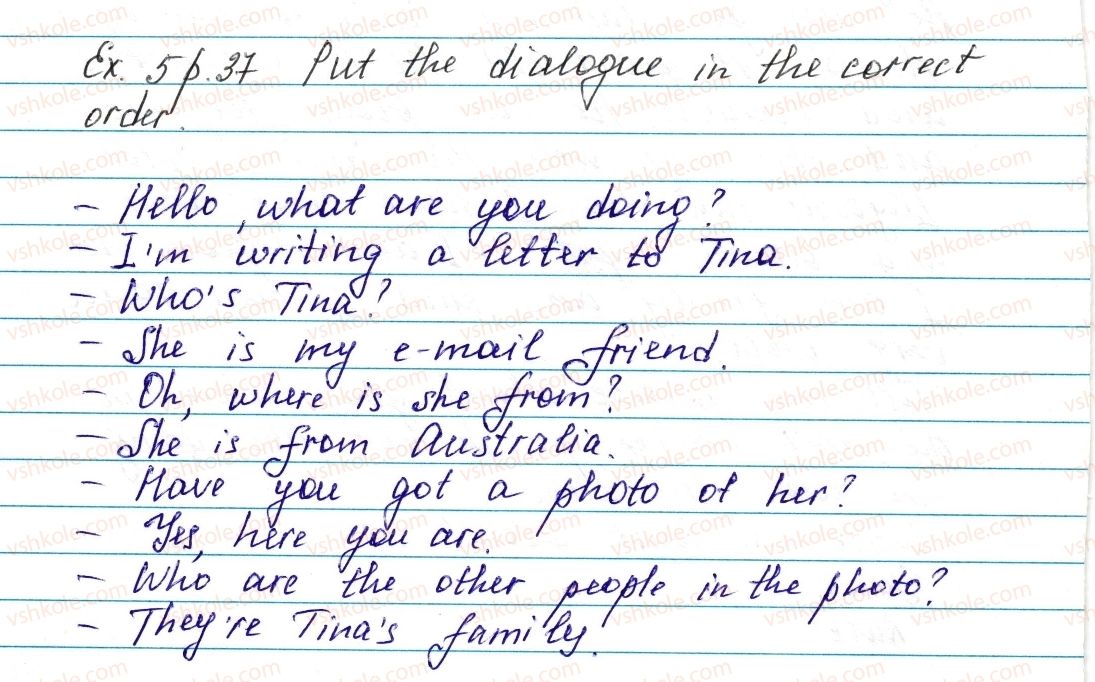 Ex. 5 p. 37 Put the dialogue in the correct
order.
– Hello, what are you doing?
– I'm writing a letter to Tina.
– Who's Tina?
– She is my e-mail friend.
– Oh, where is she from?
– She is from Australia.
– Have you got a photo of her?
– Yes, here you are.
– Who are the other people in the photo?
– They're Tina's family.